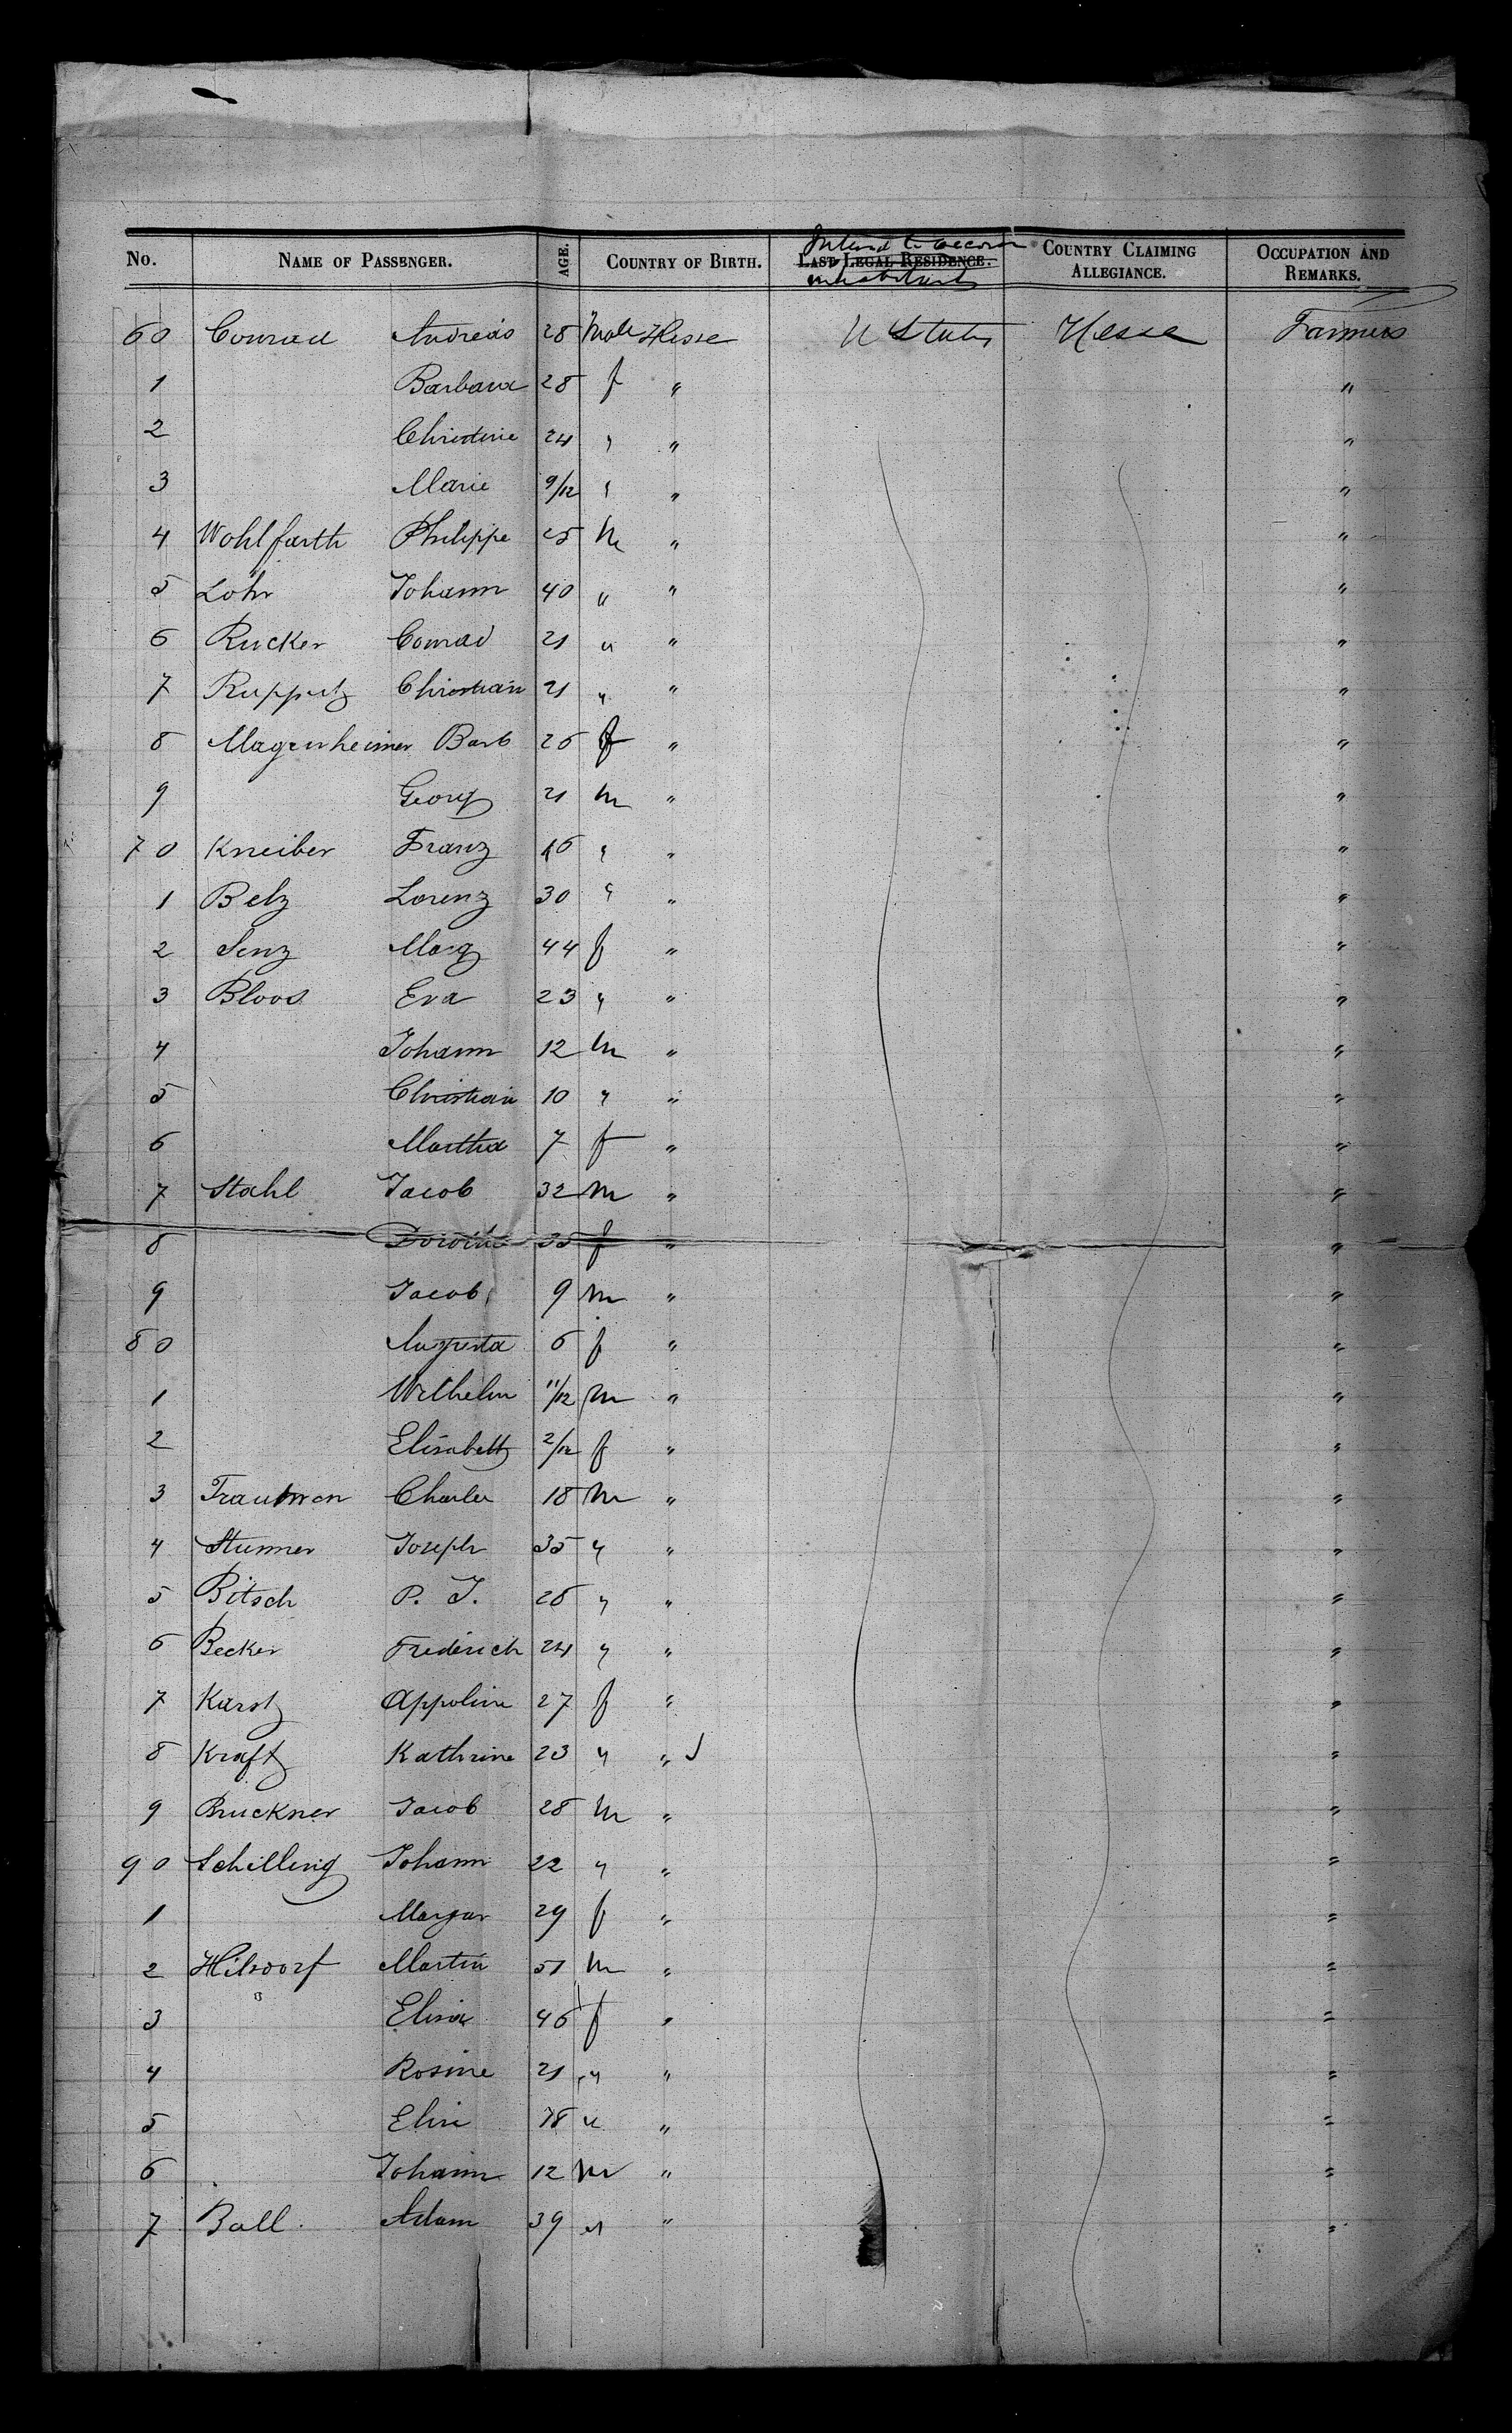 No. NAME OF PASSENGER. AGE. COUNTRY OF BIRTH. Intend to become inhabitants LAST LEGAL RESIDENCE. COUNTRY CLAIMING ALLEGIANCE. OCCUPATION AND REMARKS.
60 Conrad Andreas 28 Male Hesse U States Hesse Farmers
1 Barbara 28 f " "
2 Christine 24 " " "
3 Marie 9/12 " " "
4 Wohlfarth Philippe 25 m " "
5 Lohr Johann 40 " " "
6 Rucker Conrad 21 " " "
7 Ruppertz Christian 21 " " "
8 Magenheimer Barb 26 f " "
9 Georg 21 m " "
70 Kneiber Franz 46 " " "
1 Belz Lorenz 30 " " "
2 Senz Marg 44 f " "
3 Bloos Eva 23 " " "
4 Johann 12 m " "
5 Christian 10 " " "
6 Martha 7 f " "
7 Stahl Jacob 32 m " "
8 Dorothe 35 f " "
9 Jacob 9 m " "
80 Augusta 6 f " "
1 Wilhelm 11/12 m " "
2 Elisabeth 2/12 f " "
3 Trautman Charles 18 m " "
4 Stummer Joseph 35 " " "
5 Bitsch P. J. 26 " " "
6 Becker Frederich 24 " " "
7 Karst Appoline 27 f " "
8 Kraft Kathrine 23 " " "
9 Bruckner Jacob 28 m " "
90 Schilling Johann 22 " " "
1 Margar 29 f " "
2 Hilsdorf Martin 51 m " "
3 Elisa 46 f " "
4 Rosine 21 " " "
5 Elise 18 " " "
6 Johann 12 m " "
7 Ball Adam 39 " " "